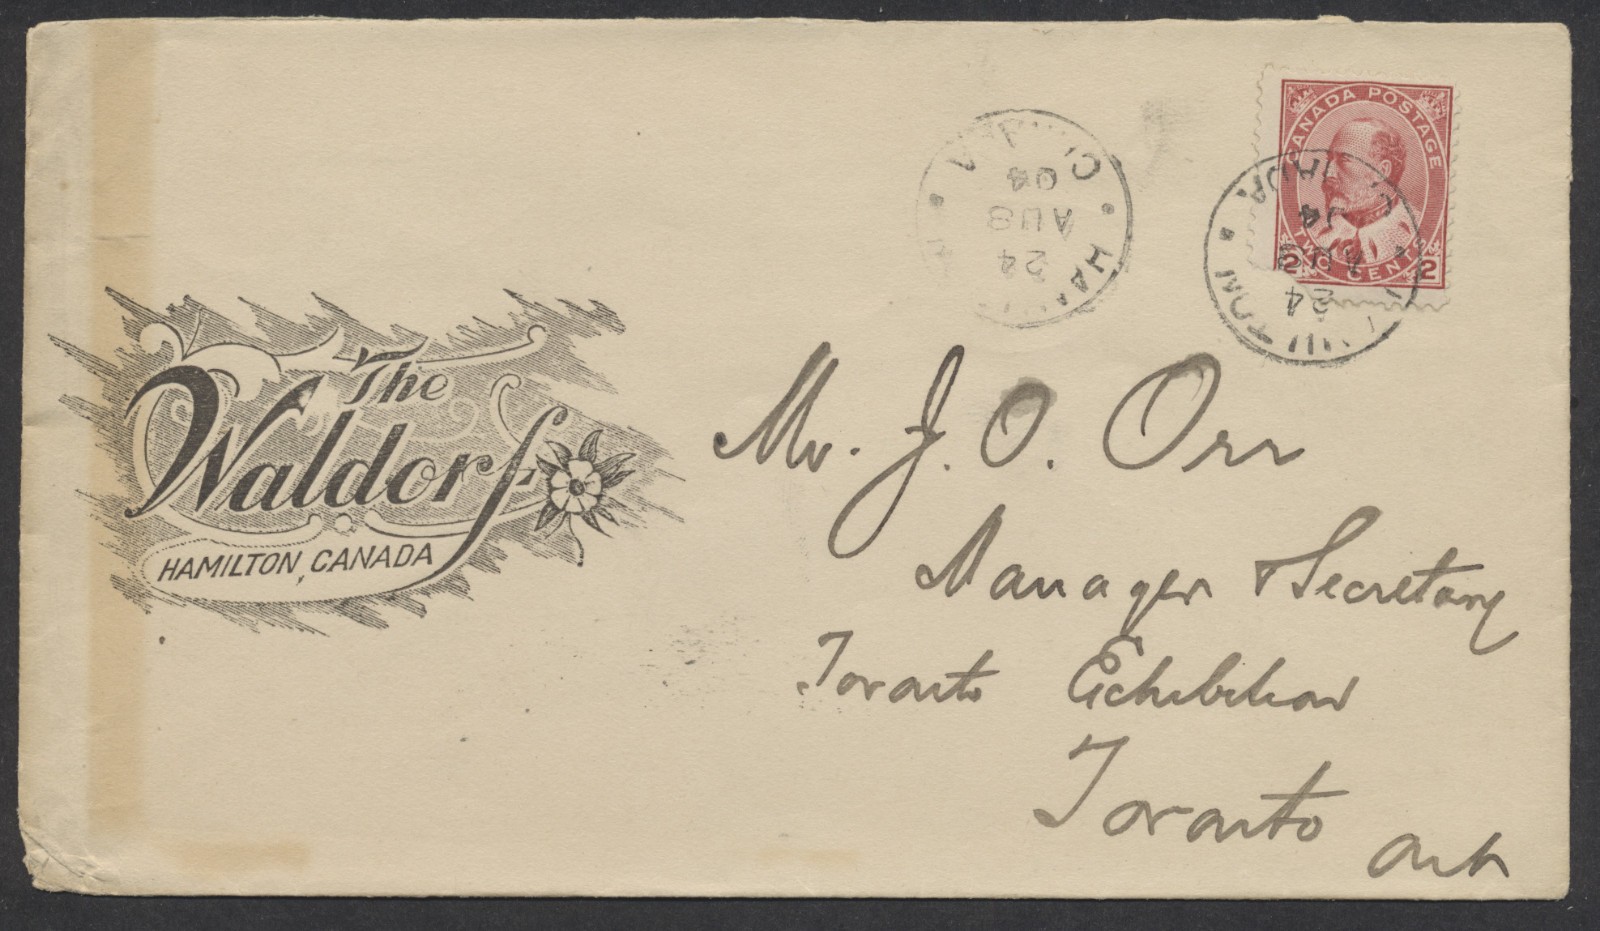 CANADA POSTAGE
2 TWO CENTS 2
HAMILTON CANADA
24
AUG
04
The
Waldorf
HAMILTON, CANADA
Mr. J. O. Orr
Manager & Secretary
Toronto Exhibition
Toronto
Ont